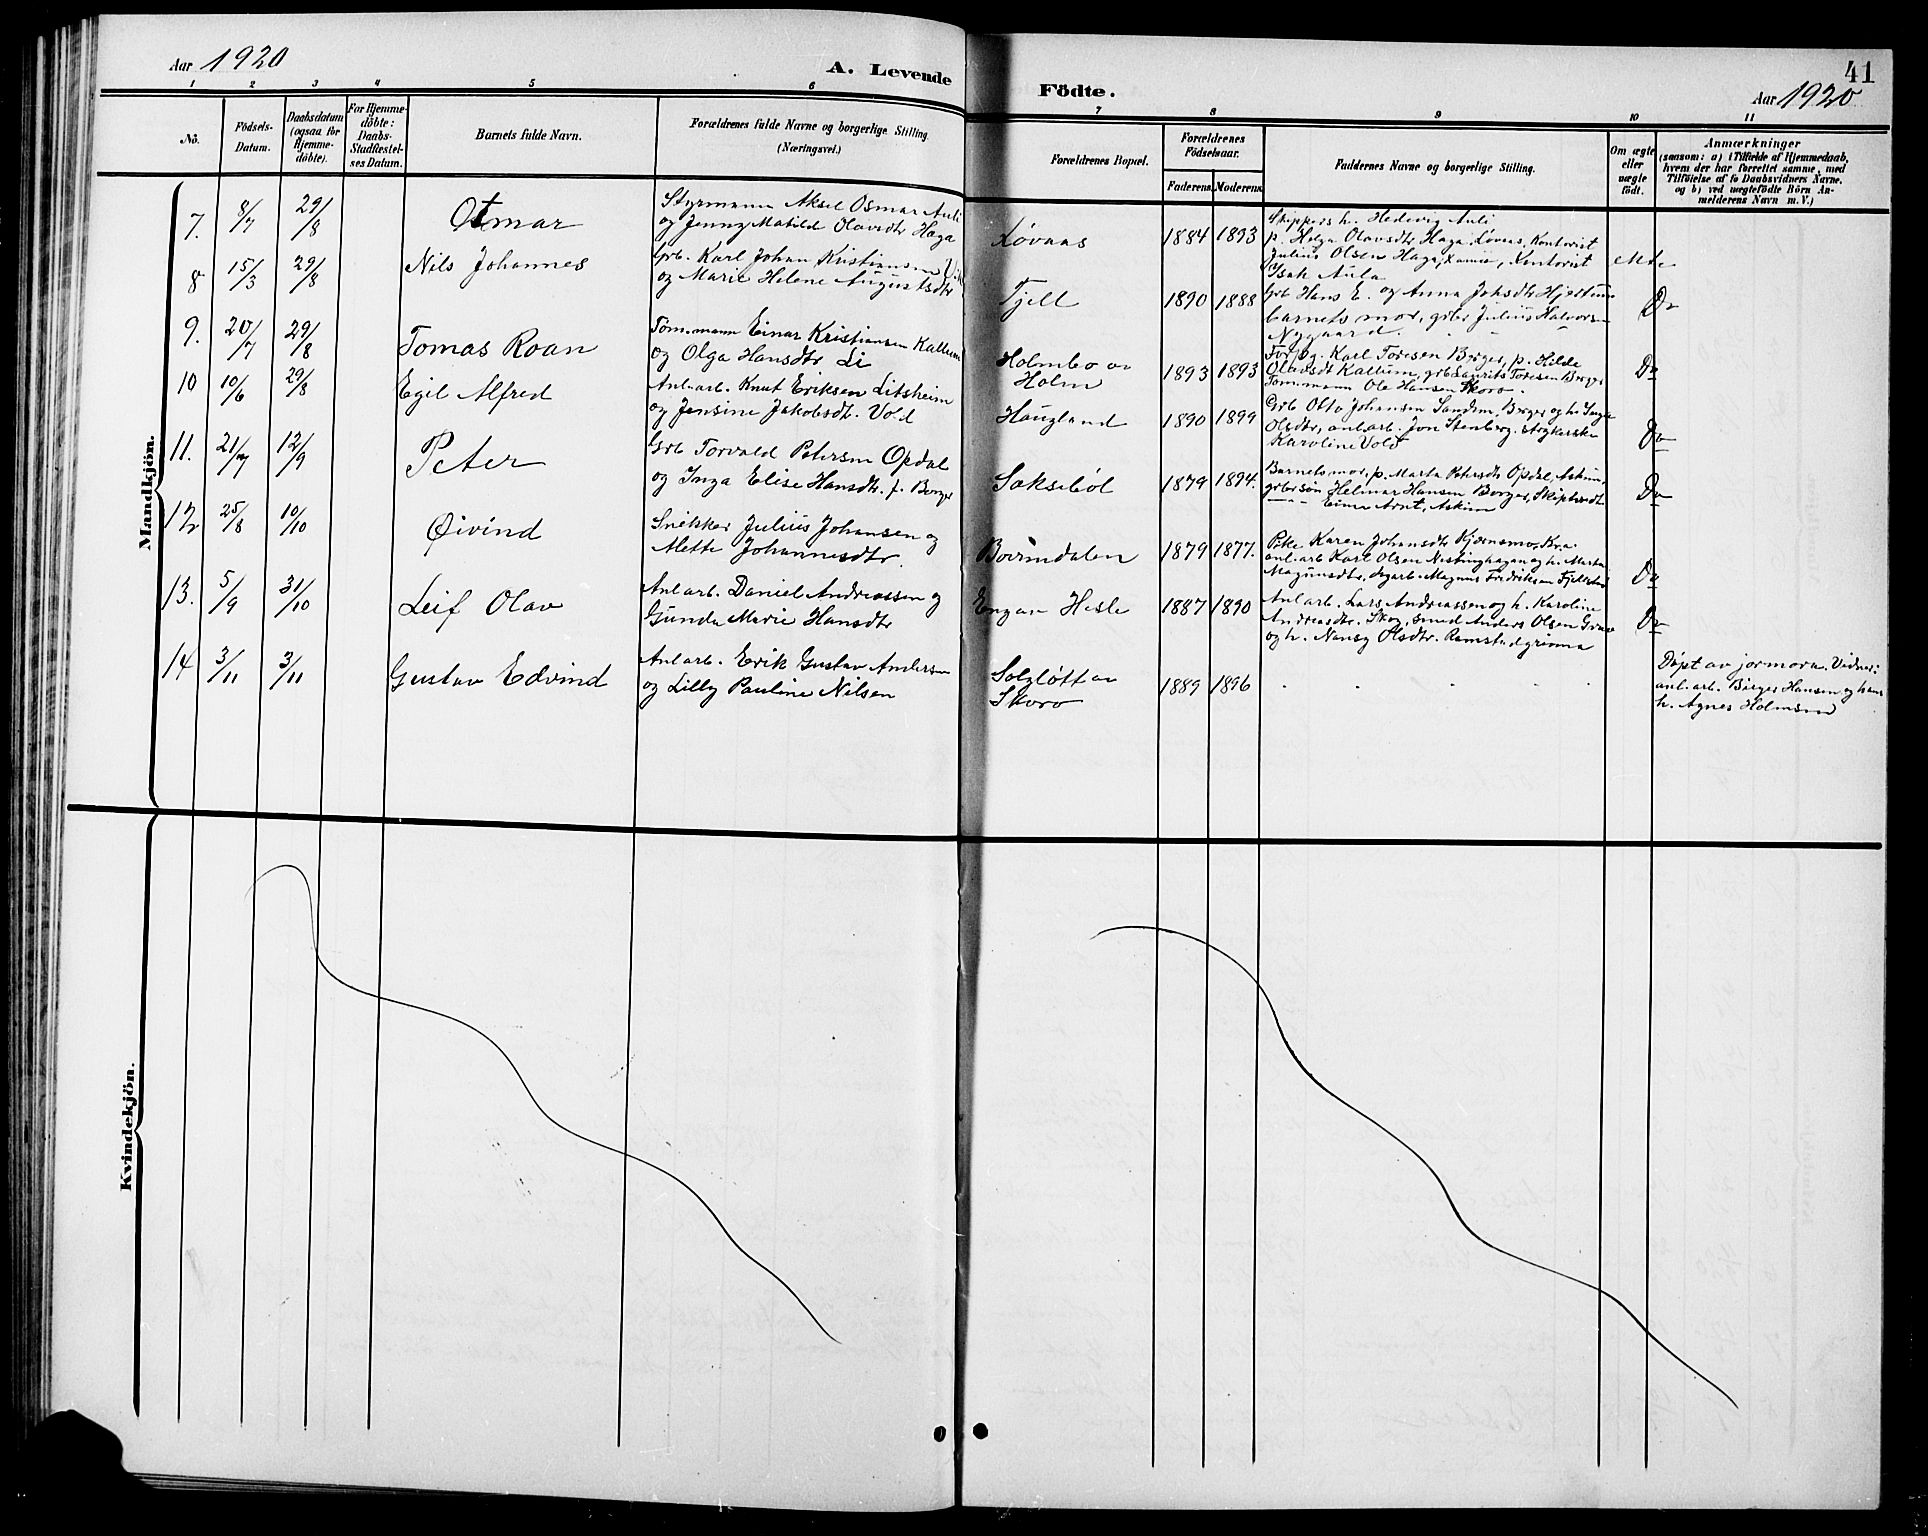 Aar 1920
A. Levende
Födte.
41
Aar 1920
1 2 3 4 5 6 7 8 9 10 11
No.
Födsels-
Datum.
Daabsdatum
(ogsaa for
Hjemme-
döbte).
For Hjemme-
döbte:
Daabs-
Stadfestel-
ses Datum.
Barnets fulde Navn.
Forældrenes fulde Navne og borgerlige Stilling
(Næringsvei.)
Forældrenes Bopæl.
Forældrenes
Födselsaar.
Faderens. Moderens.
Faddernes Navne og borgerlige Stilling.
Om ægte
eller
uægte
födt.
Anmærkninger
(saasom: a) i Tilfælde af Hjemmedaab,
hvem der har forrettet samme, med
Tilföielse af to Daabsvidners Navne,
og b) ved uægtefödte Börn An-
melderens Navn m. V.)
Mandkjön.
7. 8/7 29/8 Otmar
Styrmann Aksel Osmar Auli
og Jenny Matilde Olavsdtr Haga
Løvaas 1884 1893
Skippers h. Hedevig Auli
p. Helga Olavsdtr Haga, Løvaas, Kontorist
Julius Olsen Haga, Kontorist
Isak Aula
8 15/3 29/8 Nils Johannes
Grb. Karl Johan Kristiansen
og Marie Helene Augustsdtr
Tjell 1890 1888
Grb Hans E. og Anna Johsdtr
barnets mor, grbr Julius Halvorsen
Nygaard.
Do
9. 20/7 29/8 Tomas Roan
Tømmann Einar Kristiansen Kallum
og Olga Hansdtr Li
Holmbo av
Holm
1893 1893
Karl Toresen Berger, p. Hilde
Olavsdt Kallum, grb Laurits Toresen Berger
Tømmann Ole Hansen Skoro
Do
10 10/6 29/8 Egil Alfred
Anl.arb. Knut Eriksen Litsheim
og Jensine Jakobsdt. Vold
Haugland 1890 1899
Grb Otto Johansen Sandem, Berger og h. Inga
Olsdtr, anl.arb. Jon Stenberg, strykerske
Karoline Vold
Do
11. 21/7 12/9 Peter
Grb Torvald Petersen Opdal
og Inga Elise Hansdtr. f. Berger
Saksebøl 1879 1894.
Barnets mor, p. Marta Petersdt Opdal, Askim,
grbr søn Helmer Hansen Berger, Skiptvedt
Einar Arnt, Askim
Do
12 25/8 10/10 Øivind
Snekker Julius Johansen og
Mette Johannesdtr.
1879 1877.
Pike Karen Johansdtr Kjærnsmo, Kra.
anl.arb Karl Olsen og h. Marta
Magnusdtr, Magnus Fredriksen
Do
13. 5/9 31/10 Leif Olav
Anl.arb. Daniel Andreassen og
Gunda Marie Hansdtr
Engar Hesle 1887 1890
Anl.arb. Lars Andreassen og h. Karoline
Andreasdtr. Skog, smed Anders Olsen
og h. Nansy Olsdtr. Ramstadgrinna
Do
14 3/11 3/11 Gustav Edvind
Anl.arb. Erik Gustav Andersen
og Lilly Pauline Nilsen
Solgløtt av
Skoro
1889 1896
Døpt av jormora. Vidner:
anl.arb. Birger Hansen og hans
h. Agnes Holmsen
Kvindekjön.